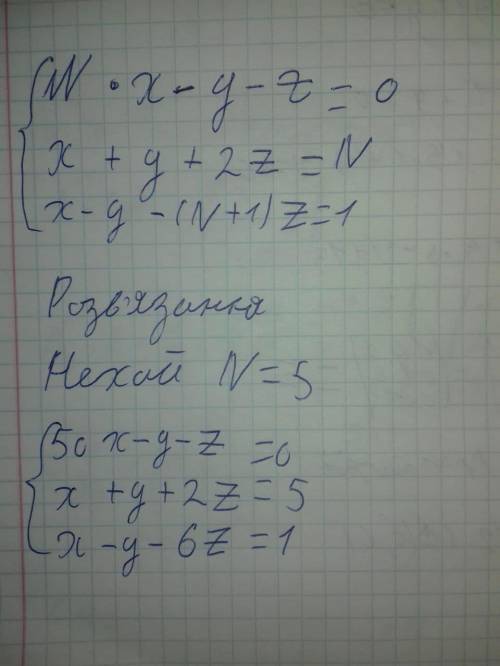 N · x - y - z = 0
x + y + 2z = N
x - y - (N+1)z = 1
Розв'язання
Нехай N = 5
50 x - y - z = 0
x + y + 2z = 5
x - y - 6z = 1